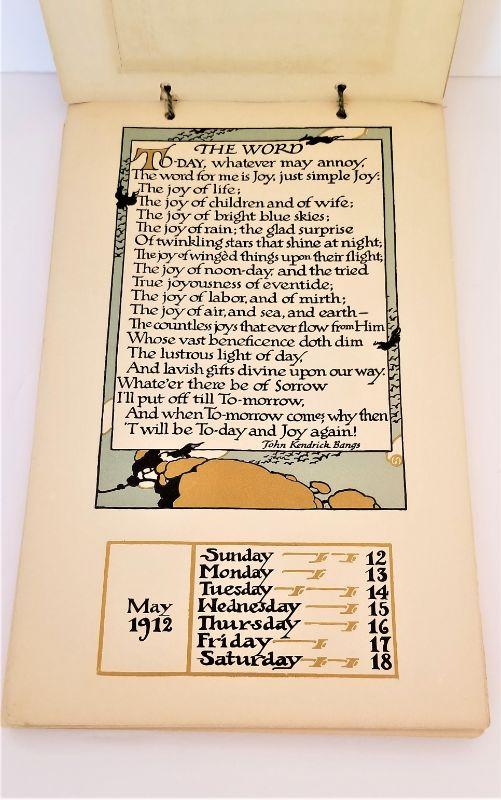 THE WORD
TO-DAY, whatever may annoy,
The word for me is Joy, just simple Joy:
The joy of life;
The joy of children and of wife;
The joy of bright blue skies;
The joy of rain; the glad surprise
Of twinkling stars that shine at night;
The joy of wingèd things upon their flight;
The joy of noon-day, and the tried
True joyousness of eventide;
The joy of labor, and of mirth;
The joy of air, and sea, and earth—
The countless joys that ever flow from Him
Whose vast beneficence doth dim
The lustrous light of day,
And lavish gifts divine upon our way.
Whate'er there be of Sorrow
I'll put off till To-morrow,
And when To-morrow comes, why then
'T will be To-day and Joy again!
John Kendrick Bangs
May
1912
Sunday 12
Monday 13
Tuesday 14
Wednesday 15
Thursday 16
Friday 17
Saturday 18